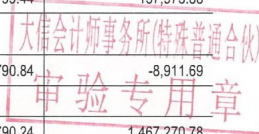 大信会计师事务所(特殊普通合伙)
790.84 -8,911.69
审验专用章
790.24 1,467,270.78